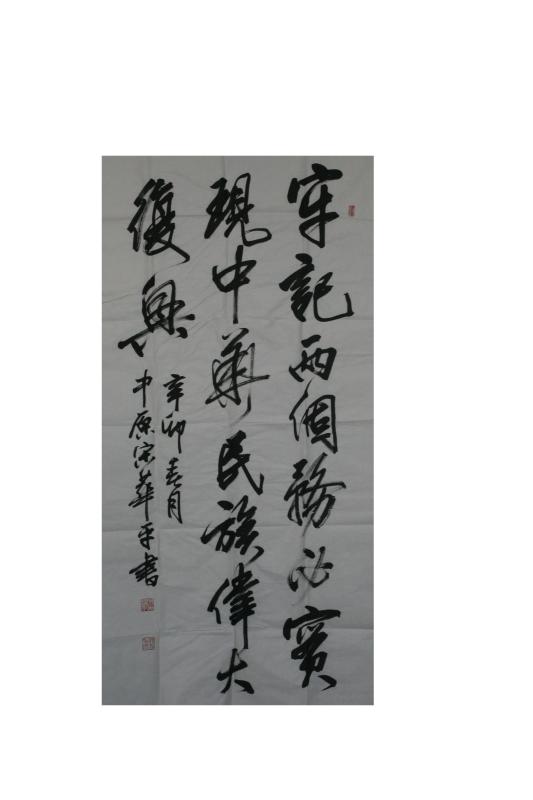 牢記兩個務必實
現中華民族偉大
復興
辛卯春月
中原宋華平書